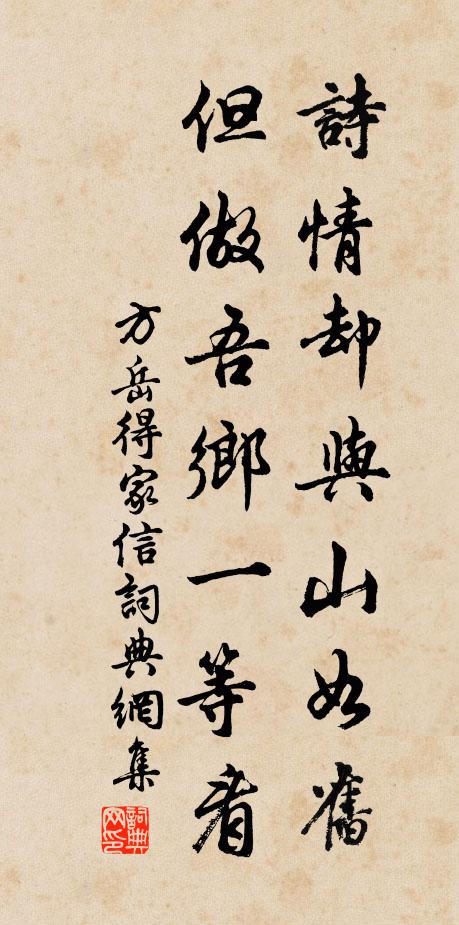 詩情却與山如舊
但做吾鄉一等看
方岳得家信詞典網集
詞典网印